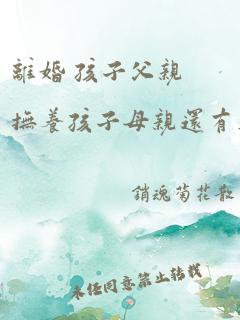 離婚 孩子父親
撫養孩子母親還有
銷魂菊花散
未经同意禁止转载